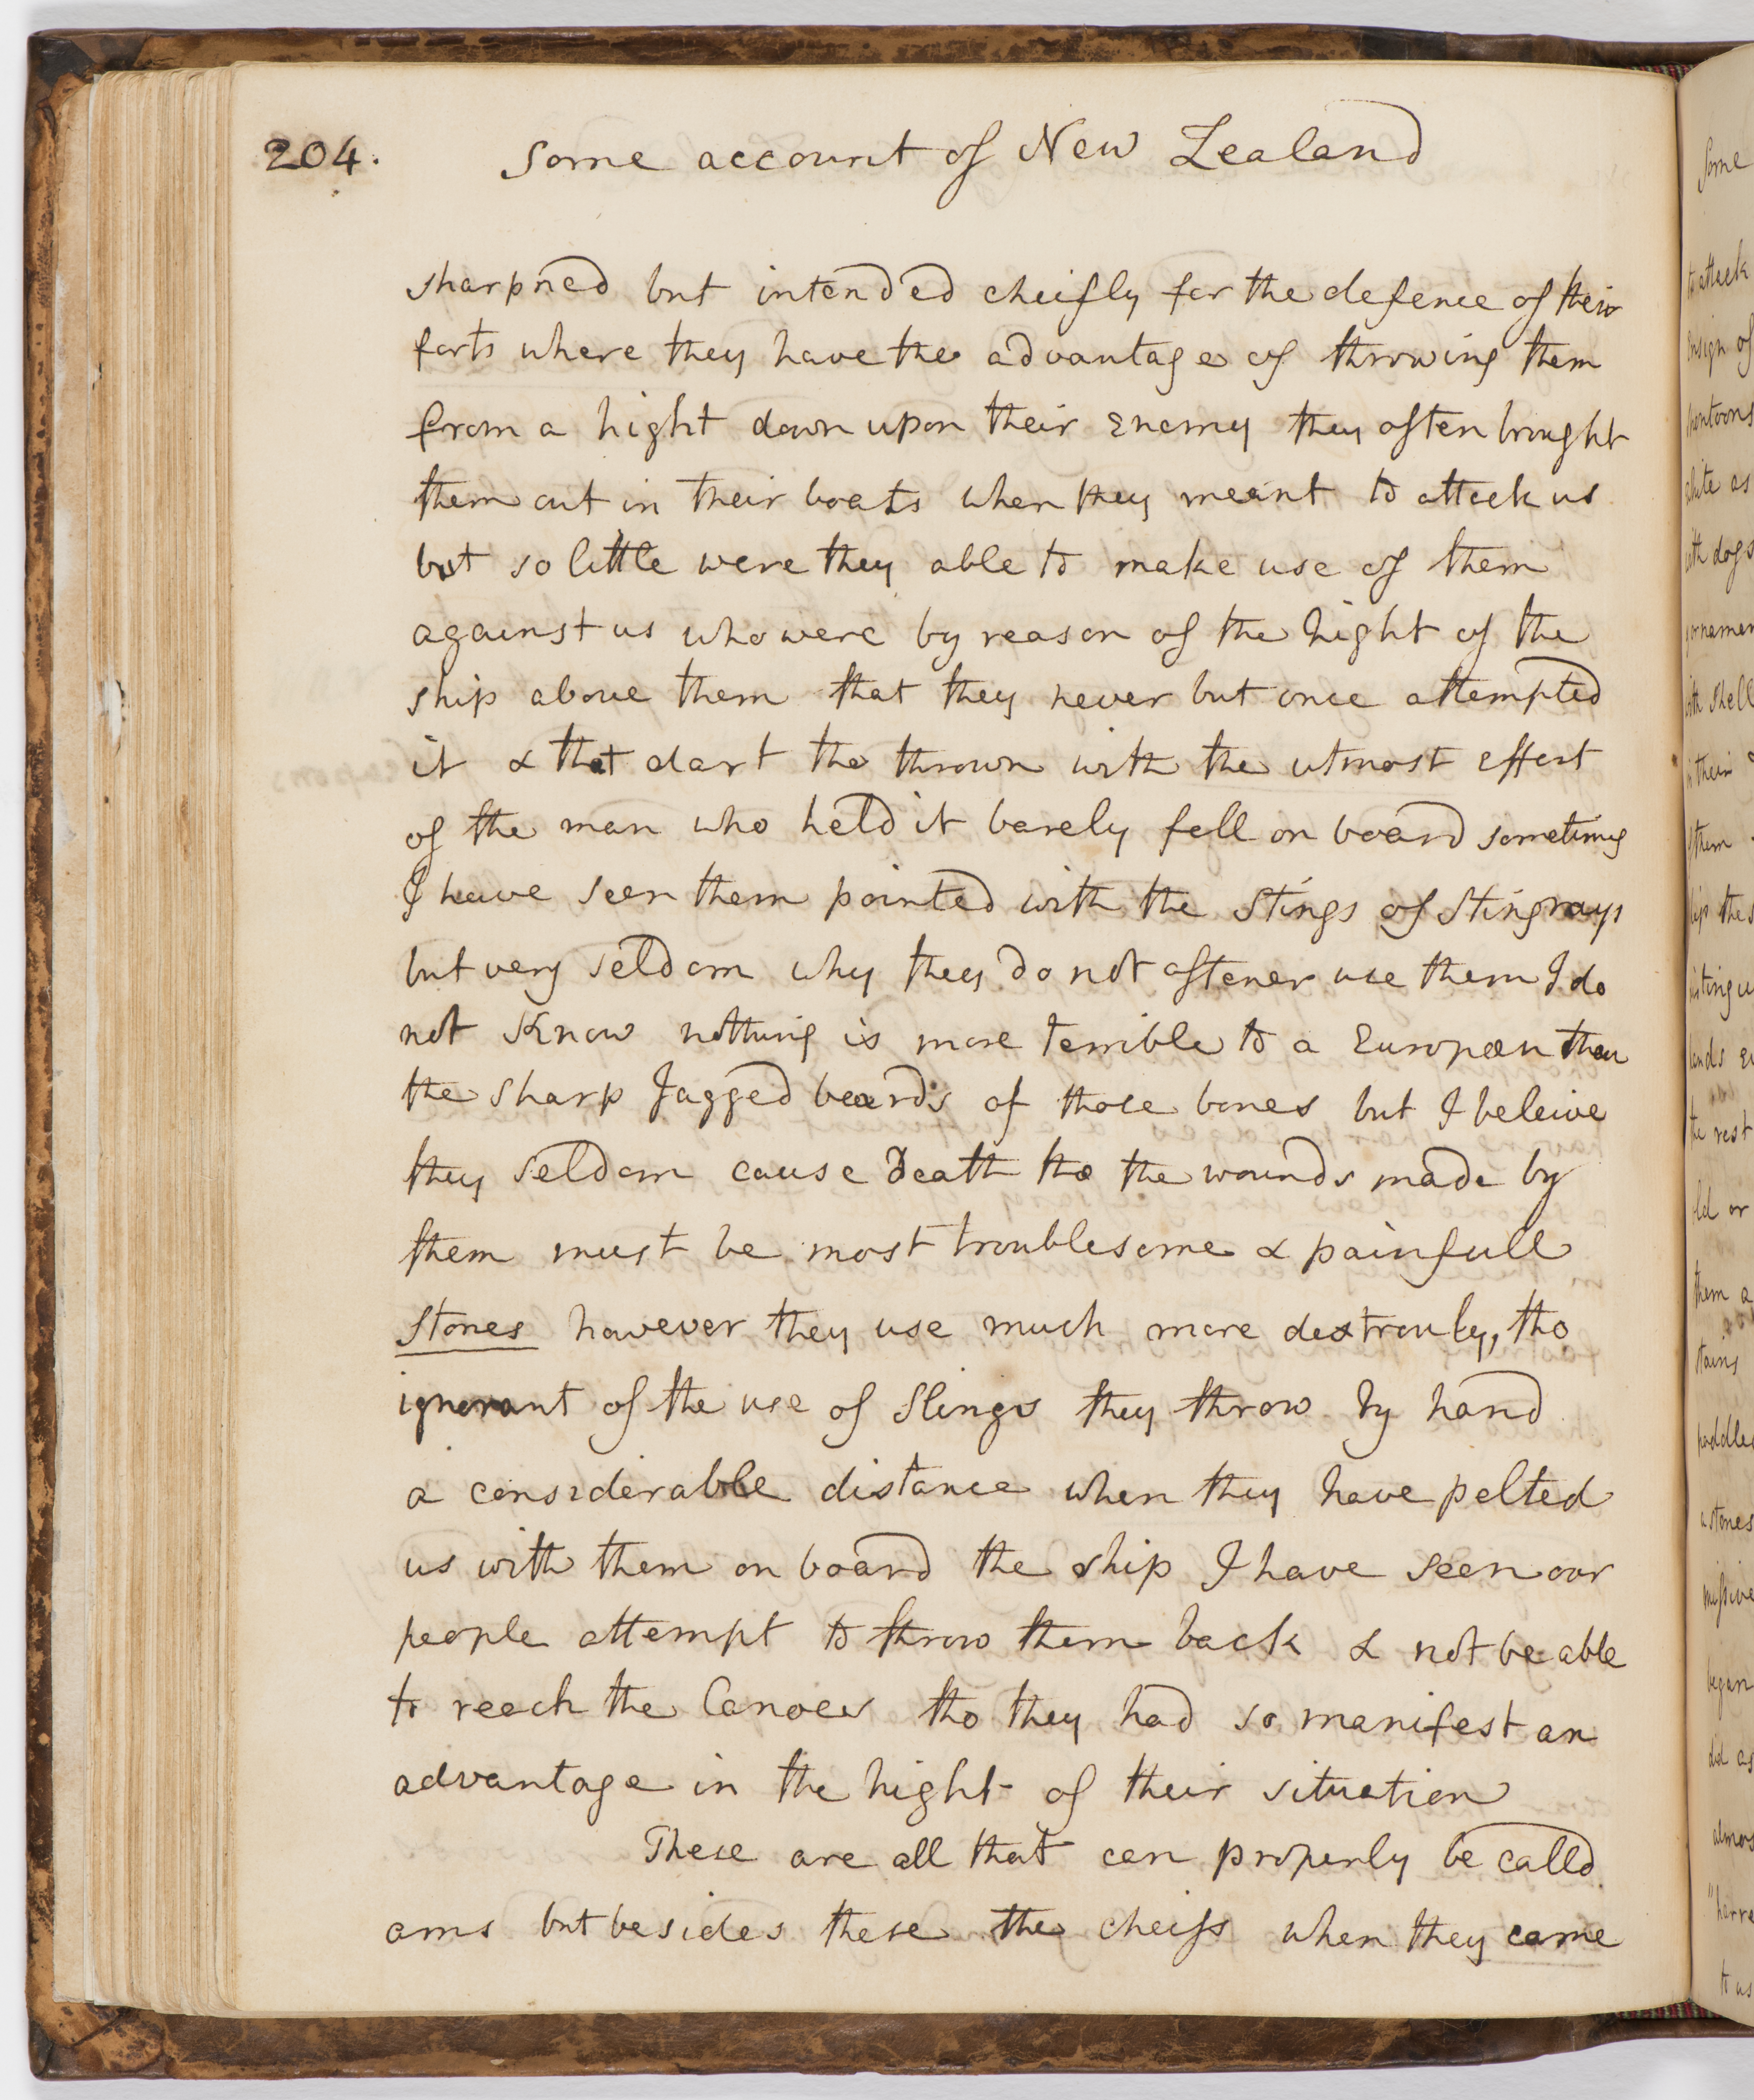 204. Some account of New Zealand
sharpned but intended cheifly for the defence of their
forts where they have the advantage of throwing them
from a hight down upon their Enemy they often brought
them out in their boats when they meant to attack us
but so little were they able to make use of them
against us who were by reason of the hight of the
ship above them that they never but once attempted
it & that dart tho thrown with the utmost effort
of the man who held it barely fell on board sometimes
I have seen them pointed with the stings of Stingrays
but very seldom why they do not oftener use them I do
not Know nothing is more terrible to a European than
the sharp Jagged beards of those bones but I beleive
they seldom cause death tho the wounds made by
them must be most troublesome & painfull
Stones however they use much more dextrously, tho
ignorant of the use of Slings they throw by hand
a considerable distance when they have pelted
us with them on board the ship I have seen our
people attempt to throw them back & not be able
to reach the Canoes tho they had so manifest an
advantage in the hight of their situation
These are all that can properly be calld
arms but besides these the cheifs when they came
Some
to attack
Ensign of
white as
with dogs
with shell
in their
them
the rest
old or
them a
stains
paddles
stones
began
did as
to us